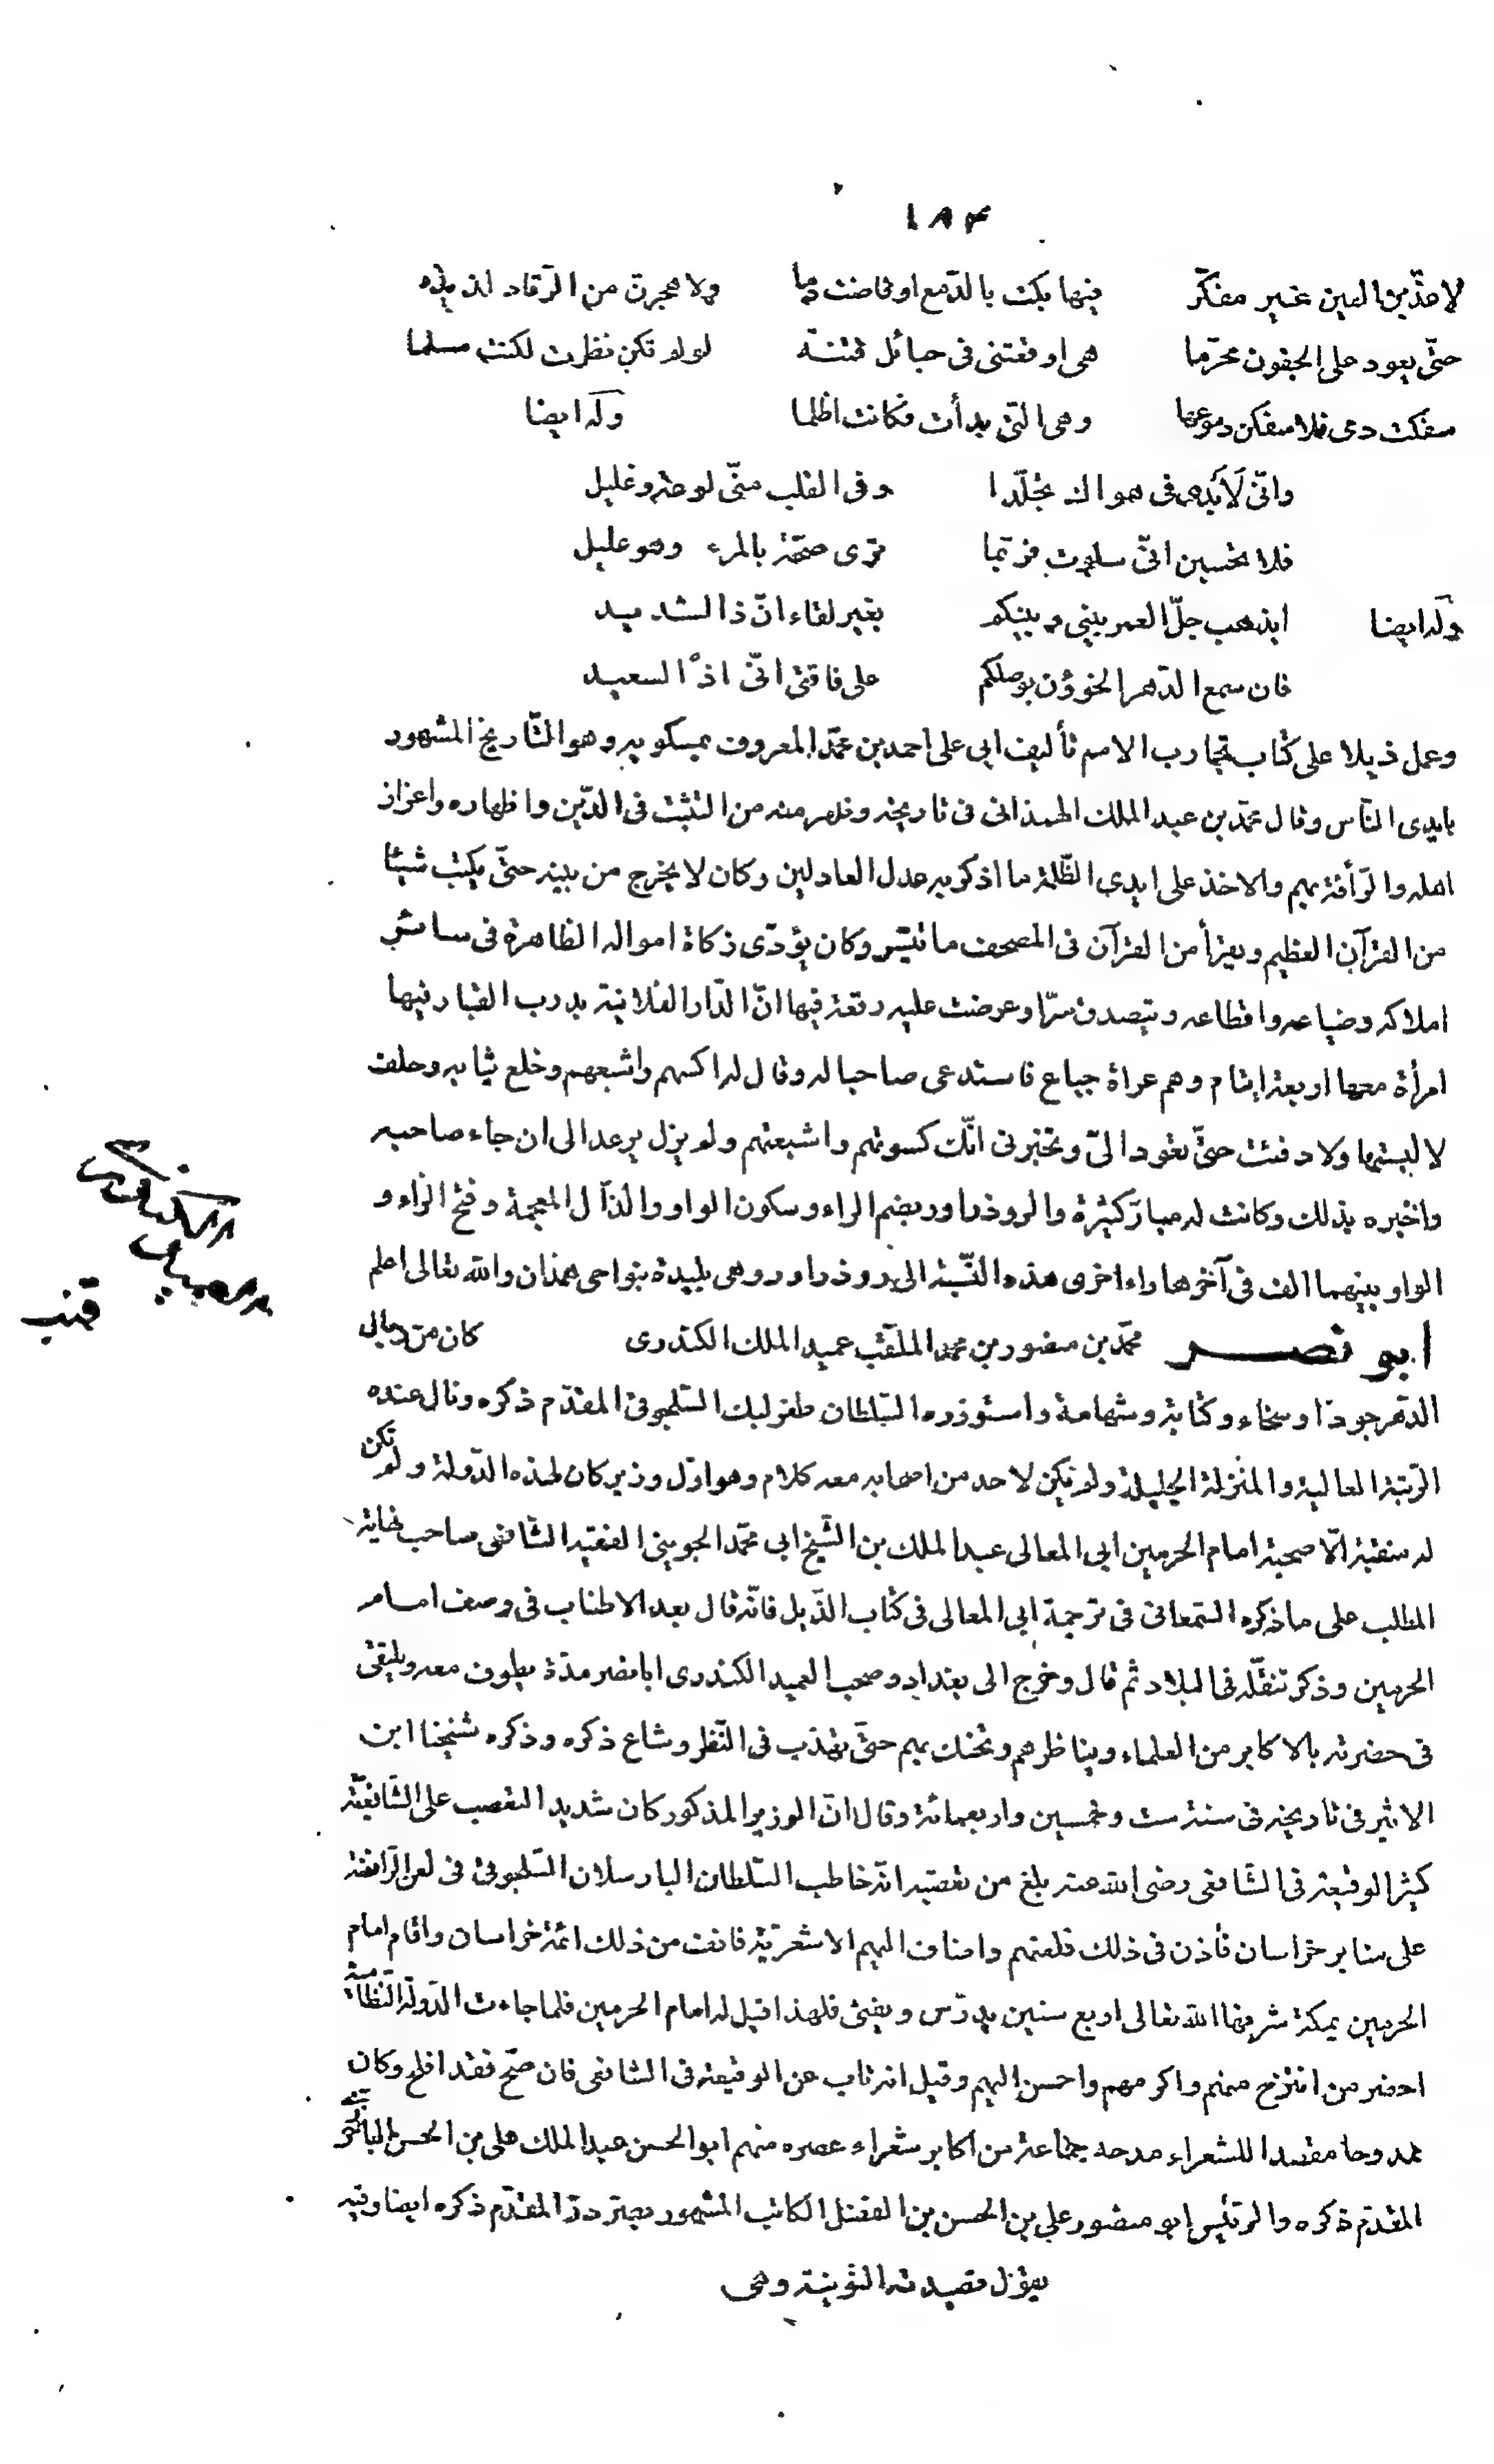 ١٨٣
لاعذّبنّ العين غير مفكّر فيها بكت بالدّمع او فاضت دما ولا هجرنّ من الرّقاد لذيذه
حتّى يعود على الجفون محرّما هى اوقعتنى فى حبائل فتنة لو لم تكن نظرت لكنت مسلما
سفكت دمى فلاسفكن دموعها وهى التى بدأت فكانت اظلما وله ايضا
وانّى لَاَبدى فى هواك تجلّدا وفى القلب منّى لوعة وغليل
فلا تحسبن انّى سلوت فربّما ترى صحّة بالمرء وهو عليل
وله ايضا ايذهب جلّ العمر بينى وبينكم بغير لقاء انّ ذا لشديد
فان سمع الدّهر الخوؤن بوصلكم على فاقتى انّى اذًا لسعيد
وعمل ذيلا على كتاب تجارب الامم تأليف ابى على احمد بن محمّد المعروف بمسكويه وهو التّاريخ المشهور
بايدى النّاس وقال محمّد بن عبد الملك الهمذانى فى تاريخه وظهر منه من التثبّت فى الدّين واظهاره واعزاز
اهله والرّأفة بهم والاخذ على ايدى الظّلمة ما اذكر به عدل العادلين وكان لا يخرج من بيته حتّى يكتب شيئا
من القرآن العظيم ويقرأ من القرآن فى المصحف ما تيسّر وكان يؤدّى زكاة امواله الظاهرة فى سائر
املاكه وضياعه واقطاعه ويتصدق سرّا وعرضت عليه رقعة فيها انّ الدّار الفلانية بدرب القيار فيها
امرأة معها اربعة ايتام وهم عراة جياع فاستدعى صاحبا له وقال له اكسهم واشبعهم وخلع ثيابه وحلف
لا لبستها ولا دفئت حتّى تعود الىّ وتخبرنى انّك كسوتهم واشبعتهم ولم يزل يرعد الى ان جاء صاحبه
واخبره بذلك وكانت له مبارّ كثيرة والروذراور بضم الراء وسكون الواو والذّال المعجمة وفتح الراء و
الواو بينهما الف فى آخرها راء اخرى هذه النّسبة الى روذراور وهى بليدة بنواحى همذان والله تعالى اعلم
ابو نصر محمّد بن منصور بن محمد الملقّب عميد الملك الكندرى كان من رجال
الدّهر جودا وسخاء وكتابة وشهامة واستوزره السّلطان طغرلبك السّلجوقى المقدّم ذكره ونال عنده
الرّتبة العالية والمنزلة الجليلة ولم يكن لاحد من اصحابه معه كلام وهو اوّل وزير كان لهذه الدّولة ولو لم تكن
له منقبة الّا صحبة امام الحرمين ابى المعالى عبد الملك بن الشّيخ ابى محمّد الجوينى الفقيه الشّافعى صاحب نهاية
المطلب على ما ذكره السّمعانى فى ترجمة ابى المعالى فى كتاب الذّيل فانّه قال بعد الاطناب فى وصف امام
الحرمين وذكر تنقّله فى البلاد ثم قال وخرج الى بغداد وصحب العميد الكندرى ابا نصر مدّة يطوف معه ويلتقى
فى حضرته بالاكابر من العلماء ويناظرهم وتحنك بهم حتّى تهذب فى النّظر وشاع ذكره وذكره شيخنا ابن
الاثير فى تاريخه فى سنة ست وخمسين واربعمائة وقال انّ الوزير المذكور كان شديد التعصب على الشّافعيّة
كثير الوقيعة فى الشّافعى رضى الله عنه بلغ من تعصّبه انّه خاطب السّلطان الب ارسلان السّلجوقى فى لعن الرّافضة
على منابر خراسان فأذن فى ذلك فلعنهم واضاف اليهم الاشعريّة فانف من ذلك ائمّة خراسان واقام امام
الحرمين بمكة شرفها الله تعالى اربع سنين يدرّس ويفتى فلهذا قيل له امام الحرمين فلما جاءت الدّولة النّظامية
احضر من انتزح منهم واكرمهم واحسن اليهم وقيل انه تاب عن الوقيعة فى الشّافعى فان صحّ فقد افلح وكان
ممدوحا مقصدا للشعراء مدحه جماعة من اكابر شعراء عصره منهم ابو الحسن عبد الملك على بن الحسن الباخرزى
المقدّم ذكره والرّئيس ابو منصور على بن الحسن بن الفضل الكاتب المشهور بصرّدرّ المقدّم ذكره ايضا وفيه
يقول قصيدته النّونية وهى